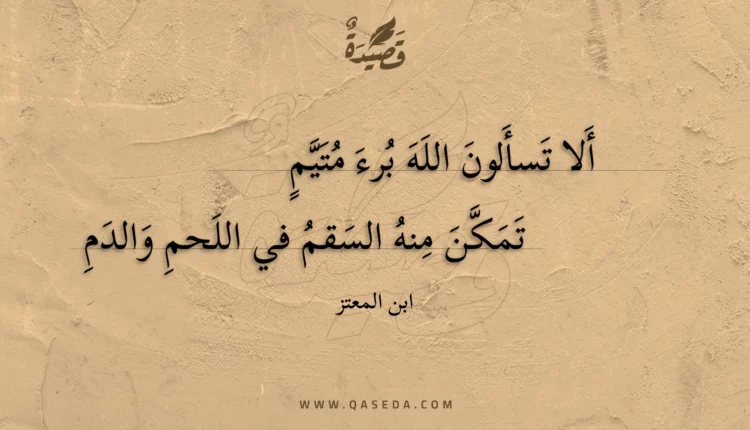 قَصِيدَةٌ
أَلا تَسأَلونَ اللَهَ بُرءَ مُتَيَّمٍ
تَمَكَّنَ مِنهُ السَقمُ في اللَحمِ وَالدَمِ
ابن المعتز
WWW.QASEDA.COM